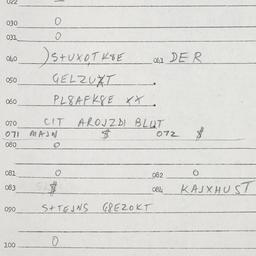 022
030 0
031 0
040 )S+UXOTK8E 061 DER
050 GELZUXT.
060 PL8AFK8E XX.
070 CIT AROJZDI BLUT
071 MAJN $ 072 $
080 0
081 0 082 0
083 $ 084 KAJXHUST
090 S+TEJNS G8EZOKT
100 0